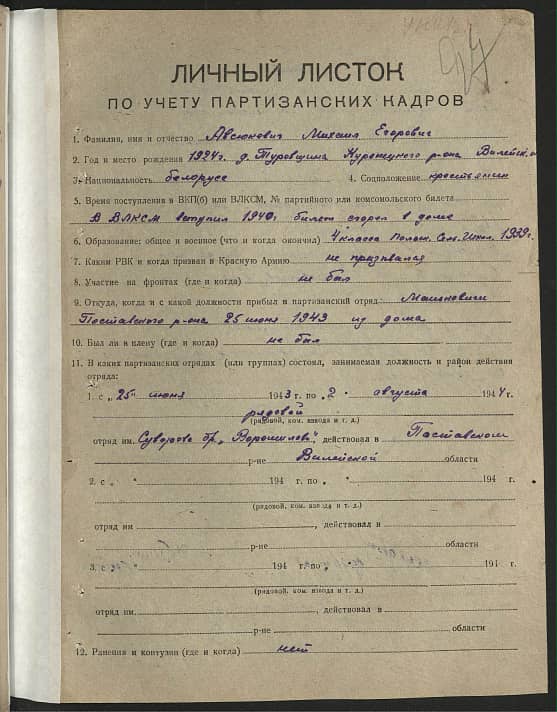 ЛИЧНЫЙ ЛИСТОК
ПО УЧЕТУ ПАРТИЗАНСКИХ КАДРОВ
1. Фамилия, имя и отчество Авсюкович Михаил Егорович
2. Год и место рождения 1924г. д. Туровщина Куренецкого р-она Вилейск. о
3. Национальность белорусс 4. Соцположение крестьянин
5. Время поступления в ВКП(б) или ВЛКСМ, № партийного или комсомольского билета
В ВЛКСМ вступил 1940г билет сгорел в доме
6. Образование: общее и военное (что и когда окончил) 4 класса Сел. Школ. 1939г.
7. Каким РВК и когда призван в Красную Армию не призвался
8. Участие на фронтах (где и когда) не был
9. Откуда, когда и с какой должности прибыл в партизанский отряд:
Поставского р-она 25 июня 1943 из дома
10. Был ли в плену (где и когда) не был
11. В каких партизанских отрядах (или группах) состоял, занимаемая должность и район действия
отряда:
1. с „25" июня 1943 г. по „2" августа 1944 г.
рядовой
(рядовой, ком. взвода и т. д.)
отряд им. Суворова бр. „Ворошилова", действовал в Поставском
р-не Вилейской области
2. с „ " 194 г. по „ " 194 г.
(рядовой, ком. взвода и т. д.)
отряд им , действовал в
р-не области
3. с „ " 194 г. по „ " 194 г.
(рядовой, ком. взвода и т. д.)
отряд им , действовал в
р-не области
12. Ранения и контузии (где и когда) нет